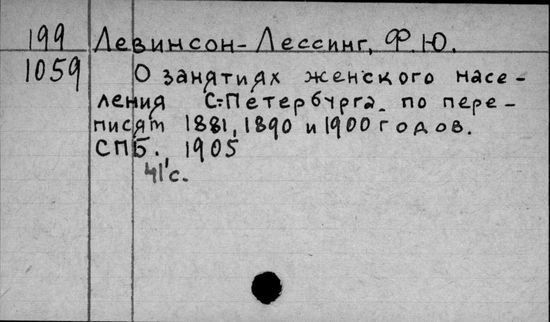 199 Левинсон-Лессинг, Ф.Ю.
1059 О занятиях женского насе-
ления С.-Петербурга по пере-
писям 1881, 1890 и 1900 годов.
СПБ., 1905
41 с.